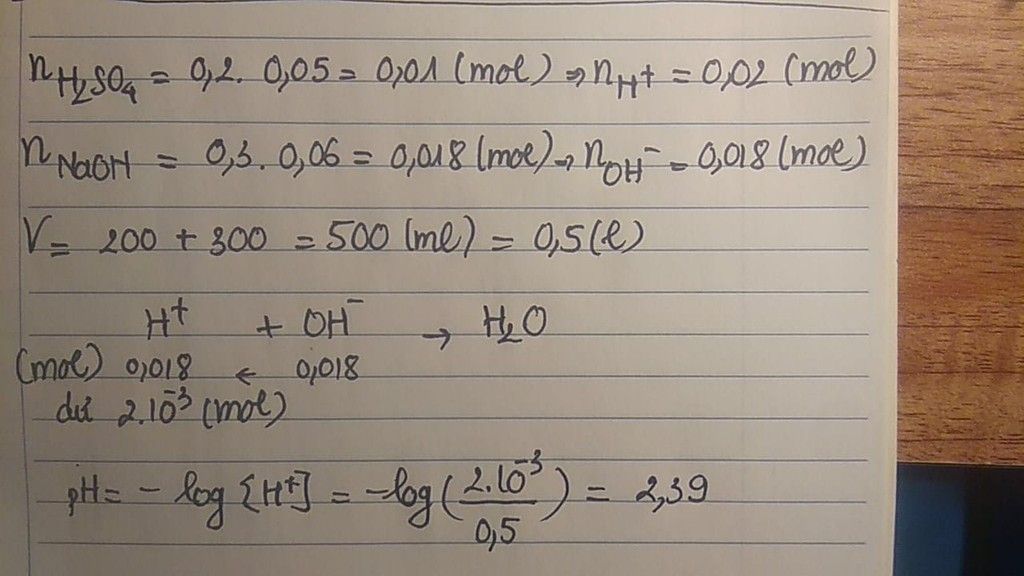 n H₂SO₄ = 0,2. 0,05 = 0,01 (mol) ⇒ n H⁺ = 0,02 (mol)
n NaOH = 0,3. 0,06 = 0,018 (mol) → n OH⁻ = 0,018 (mol)
V = 200 + 300 = 500 (ml) = 0,5 (l)
H⁺ + OH⁻ → H₂O
(mol) 0,018 ← 0,018
dư 2.10⁻³ (mol)
pH = - log [H⁺] = -log(2.10⁻³/0,5) = 2,39